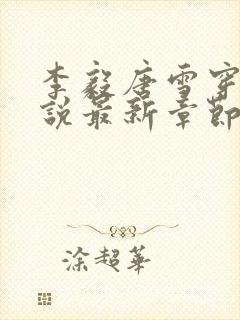 李毅唐雪穿
說最新章節
涂超華